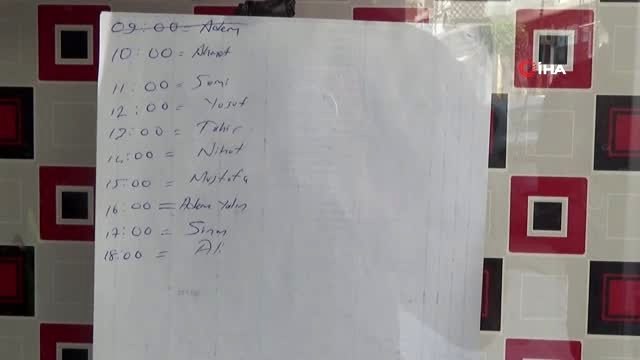 09:00 = Adem
10:00 = Ahmet
11:00 = Sami
12:00 = Yusuf
13:00 = Tahir
14:00 = Nihat
15:00 = Mustafa
16:00 = Adem Yalın
17:00 = Sinan
18:00 = Ali
İHA